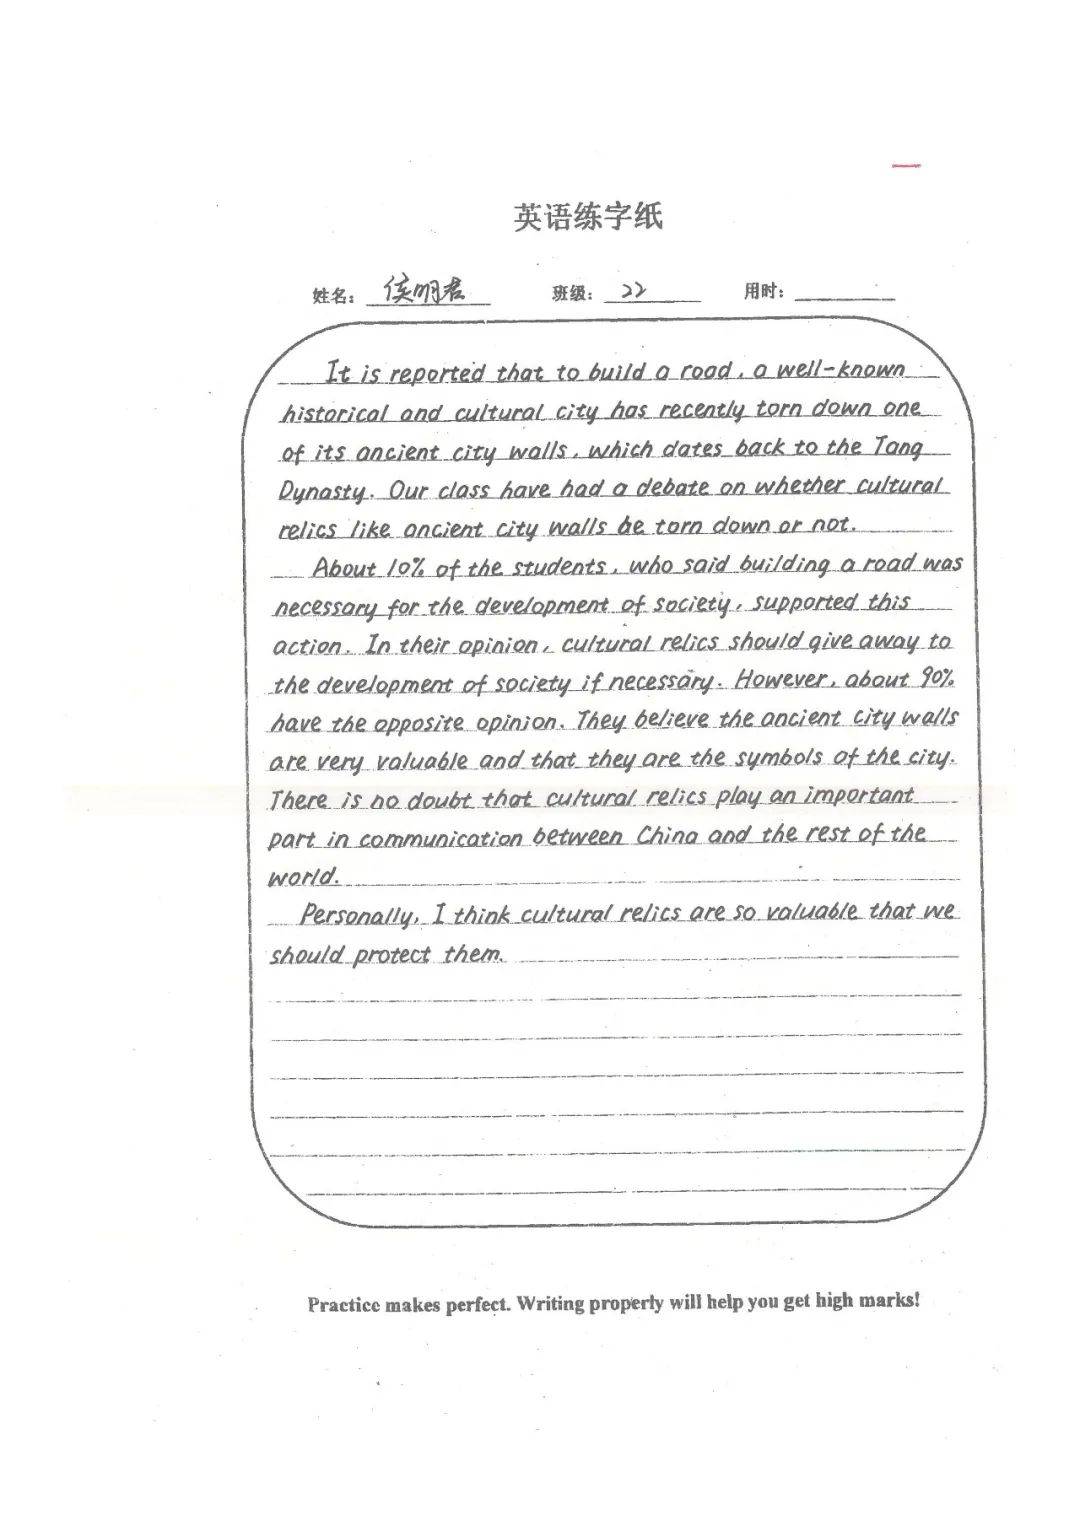 英语练字纸
姓名: 侯明君 班级: 22 用时:
It is reported that to build a road, a well-known
historical and cultural city has recently torn down one
of its ancient city walls, which dates back to the Tang
Dynasty. Our class have had a debate on whether cultural
relics like ancient city walls be torn down or not.
About 10% of the students, who said building a road was
necessary for the development of society, supported this
action. In their opinion, cultural relics should give away to
the development of society if necessary. However, about 90%
have the opposite opinion. They believe the ancient city walls
are very valuable and that they are the symbols of the city.
There is no doubt that cultural relics play an important
part in communication between China and the rest of the
world.
Personally, I think cultural relics are so valuable that we
should protect them.
Practice makes perfect. Writing properly will help you get high marks!